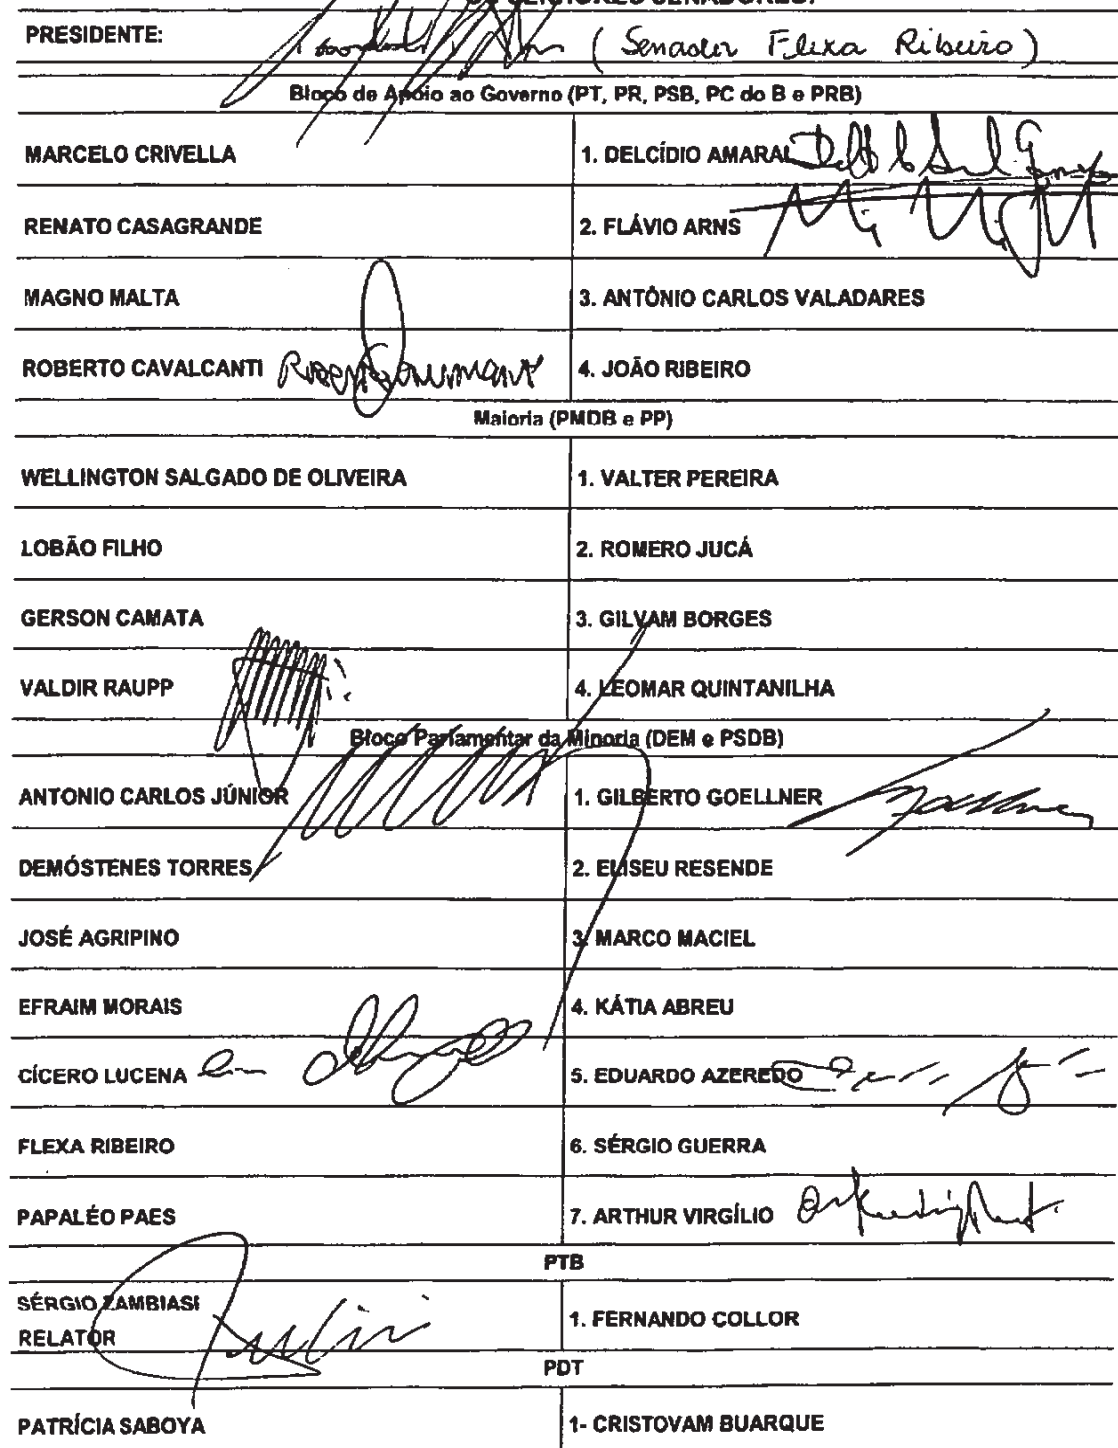 OS SENHORES SENADORES:
PRESIDENTE: (Senador Flexa Ribeiro)
Bloco de Apoio ao Governo (PT, PR, PSB, PC do B e PRB)
MARCELO CRIVELLA 1. DELCÍDIO AMARAL
RENATO CASAGRANDE 2. FLÁVIO ARNS
MAGNO MALTA 3. ANTÔNIO CARLOS VALADARES
ROBERTO CAVALCANTI 4. JOÃO RIBEIRO
Maioria (PMDB e PP)
WELLINGTON SALGADO DE OLIVEIRA 1. VALTER PEREIRA
LOBÃO FILHO 2. ROMERO JUCÁ
GERSON CAMATA 3. GILVAM BORGES
VALDIR RAUPP 4. LEOMAR QUINTANILHA
Bloco Parlamentar da Minoria (DEM e PSDB)
ANTONIO CARLOS JÚNIOR 1. GILBERTO GOELLNER
DEMÓSTENES TORRES 2. ELISEU RESENDE
JOSÉ AGRIPINO 3. MARCO MACIEL
EFRAIM MORAIS 4. KÁTIA ABREU
CÍCERO LUCENA 5. EDUARDO AZEREDO
FLEXA RIBEIRO 6. SÉRGIO GUERRA
PAPALÉO PAES 7. ARTHUR VIRGÍLIO
PTB
SÉRGIO ZAMBIASI
RELATOR 1. FERNANDO COLLOR
PDT
PATRÍCIA SABOYA 1- CRISTOVAM BUARQUE